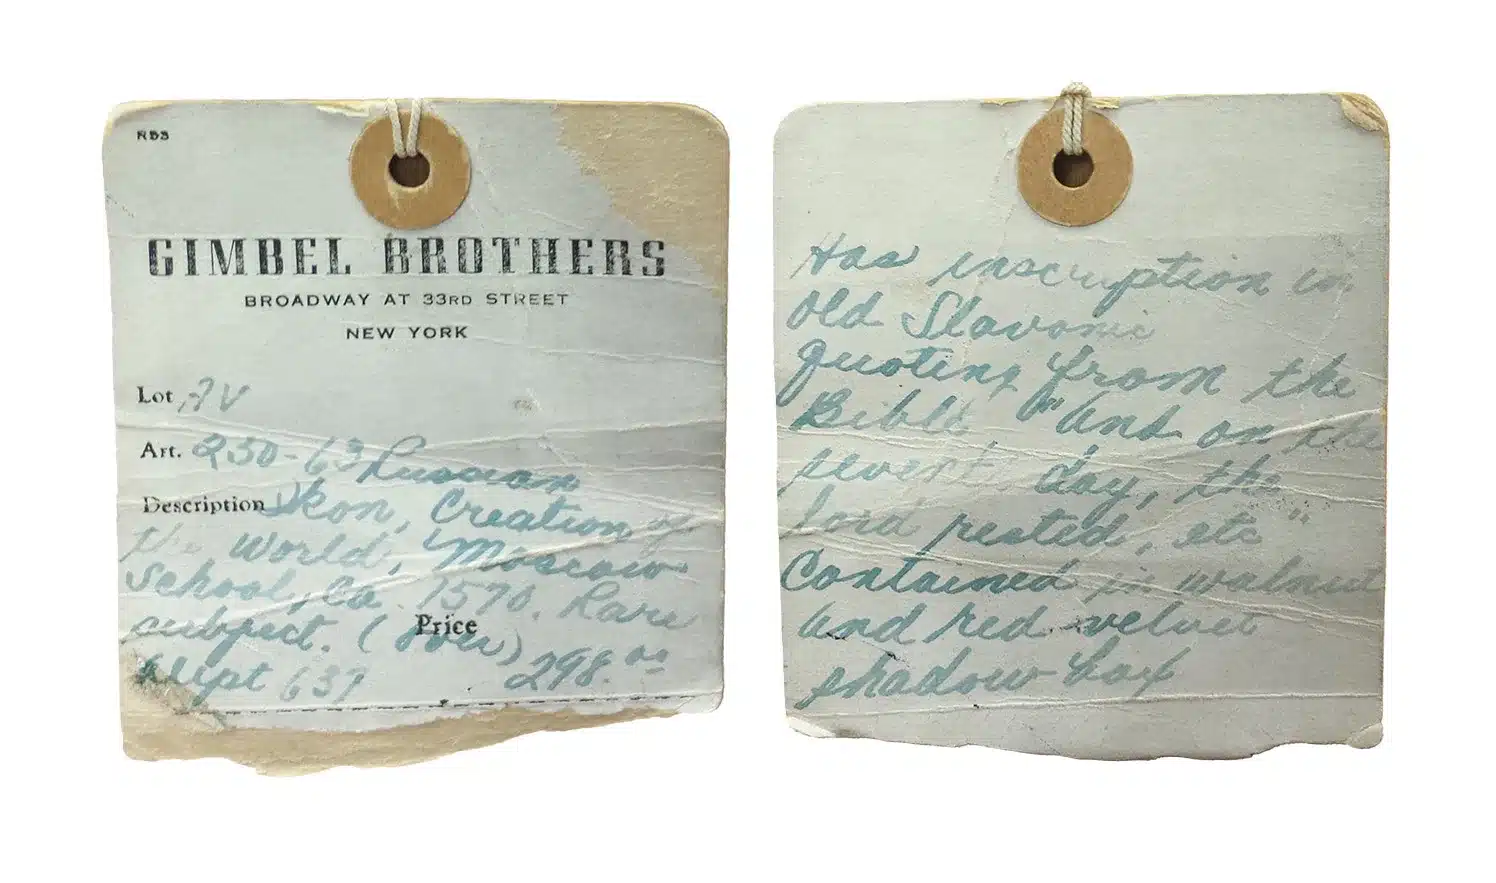 RBS
GIMBEL BROTHERS
BROADWAY AT 33RD STREET
NEW YORK
Lot
Art. 250-63 Russian
Description Ikon, Creation of
the World, Moscow
School, Ca. 1570. Rare
subject. (Over)
Price
Dept 637 298.00
Has inscription in
old Slavonic
quoting from the
Bible "And on the
day, the
lord rested, etc"
Contained in walnut
and red velvet
shadow box